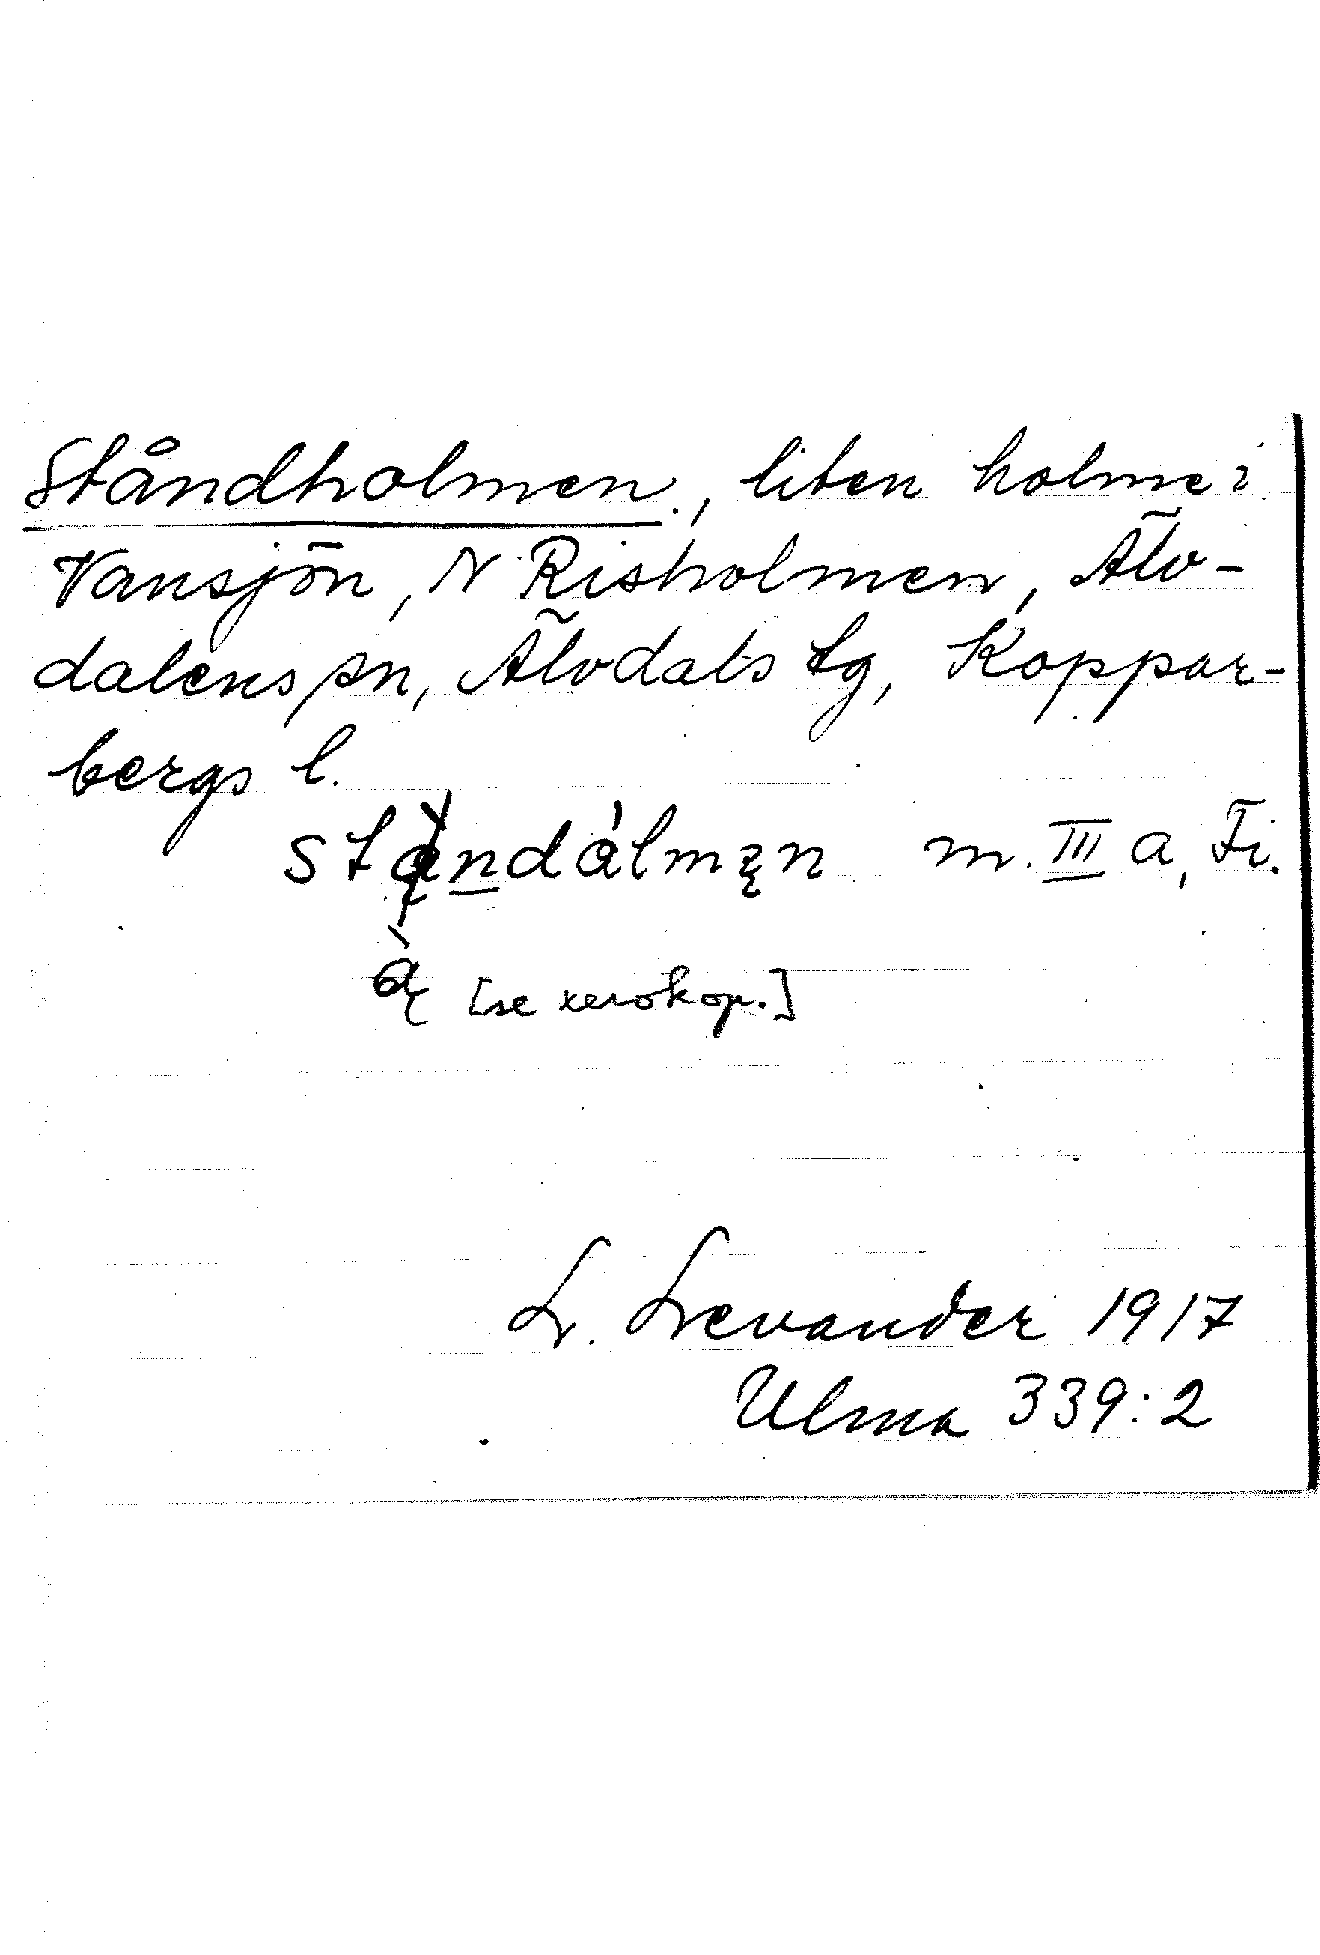 Ståndholmen, liten holme i
Vansjön, N Risholmen, Älv-
dalens sn, Älvdals tg, Koppar-
bergs l.
stą̀ndálmęn m. III a, Fi.
ą̀ [se xerokop.]
L. Levander 1917
Ulma 339:2